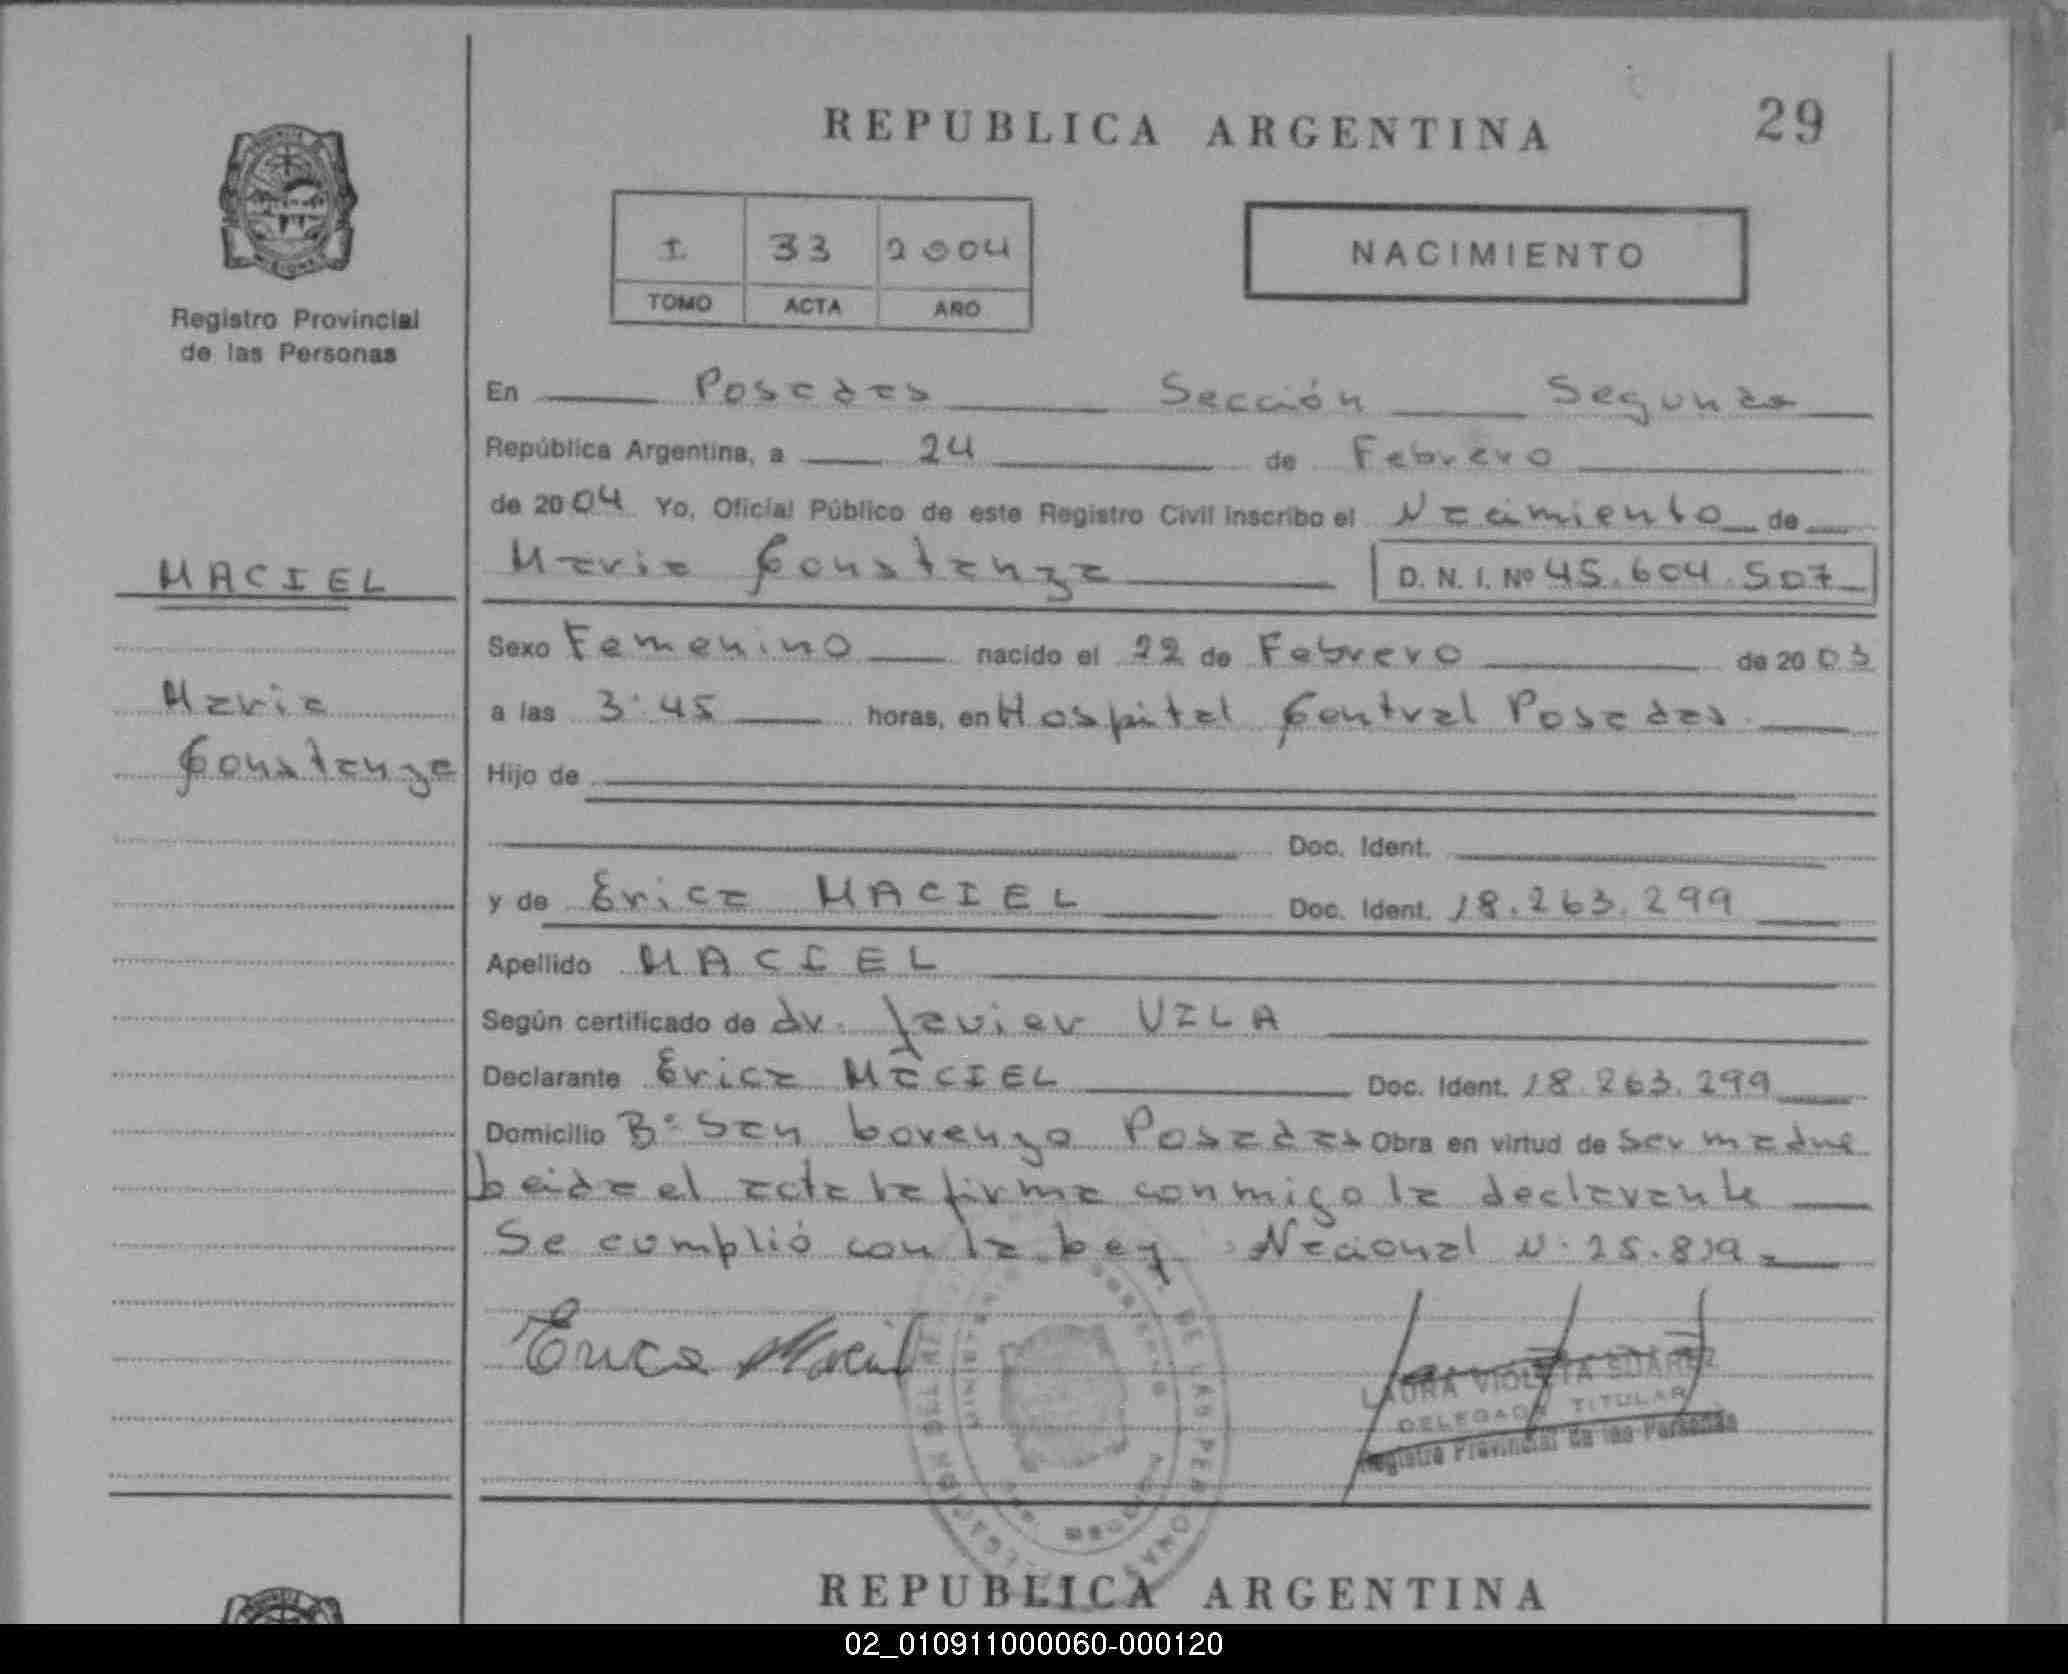 REPUBLICA ARGENTINA
29
I 33 2004
TOMO ACTA AÑO
NACIMIENTO
Registro Provincial
de las Personas
En Posadas Sección Segunda
República Argentina, a 24 de Febrero
de 2004 Yo, Oficial Público de este Registro Civil inscribo el Nacimiento de
María Constanza D. N. I. Nº 45.604.507
MACIEL
María
Constanza
Sexo Femenino nacido el 22 de Febrero de 2003
a las 3:45 horas, en Hospital Central Posadas.
Hijo de
Doc. Ident.
y de Erica MACIEL Doc. Ident. 18.263.299
Apellido MACIEL
Según certificado de dr. Javier VILA
Declarante Erica MACIEL Doc. Ident. 18.263.299
Domicilio Bº San Lorenzo Posadas Obra en virtud de ser madre
Leída el acta la firma conmigo la declarante
Se cumplió con la Ley Nacional N. 25.819
Erica Maciel
LAURA VIOLETA SUAREZ
DELEGADA TITULAR
Registro Provincial de las Personas
DE LAS PERSONAS
REPUBLICA ARGENTINA
02_010911000060-000120